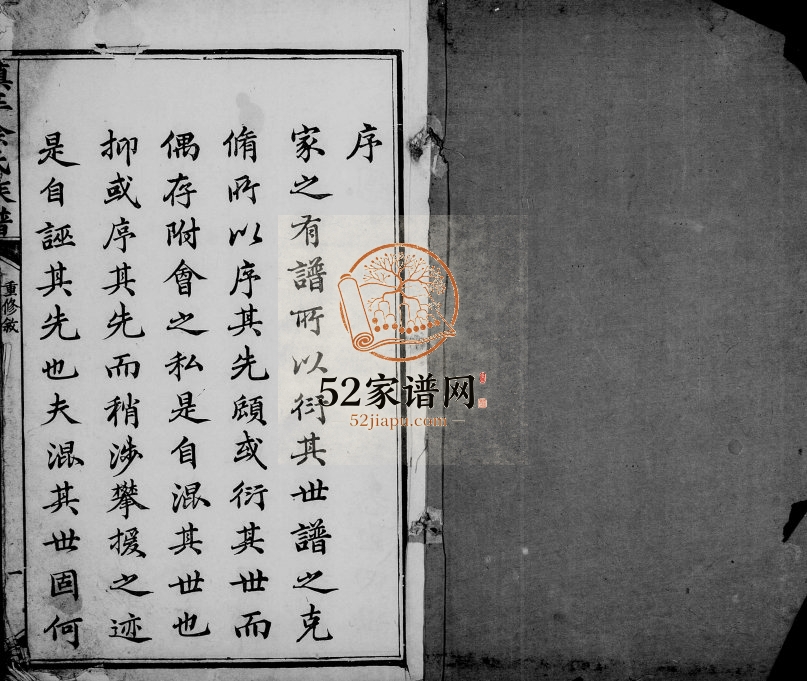 序
家之有譜所以衍其世譜之克
脩所以序其先頋或衍其世而
偶存附會之私是自混其世也
抑或序其先而稍涉攀援之迹
是自誣其先也夫混其世固何
氏族譜
重修敘
一
52家谱网
52jiapu.com